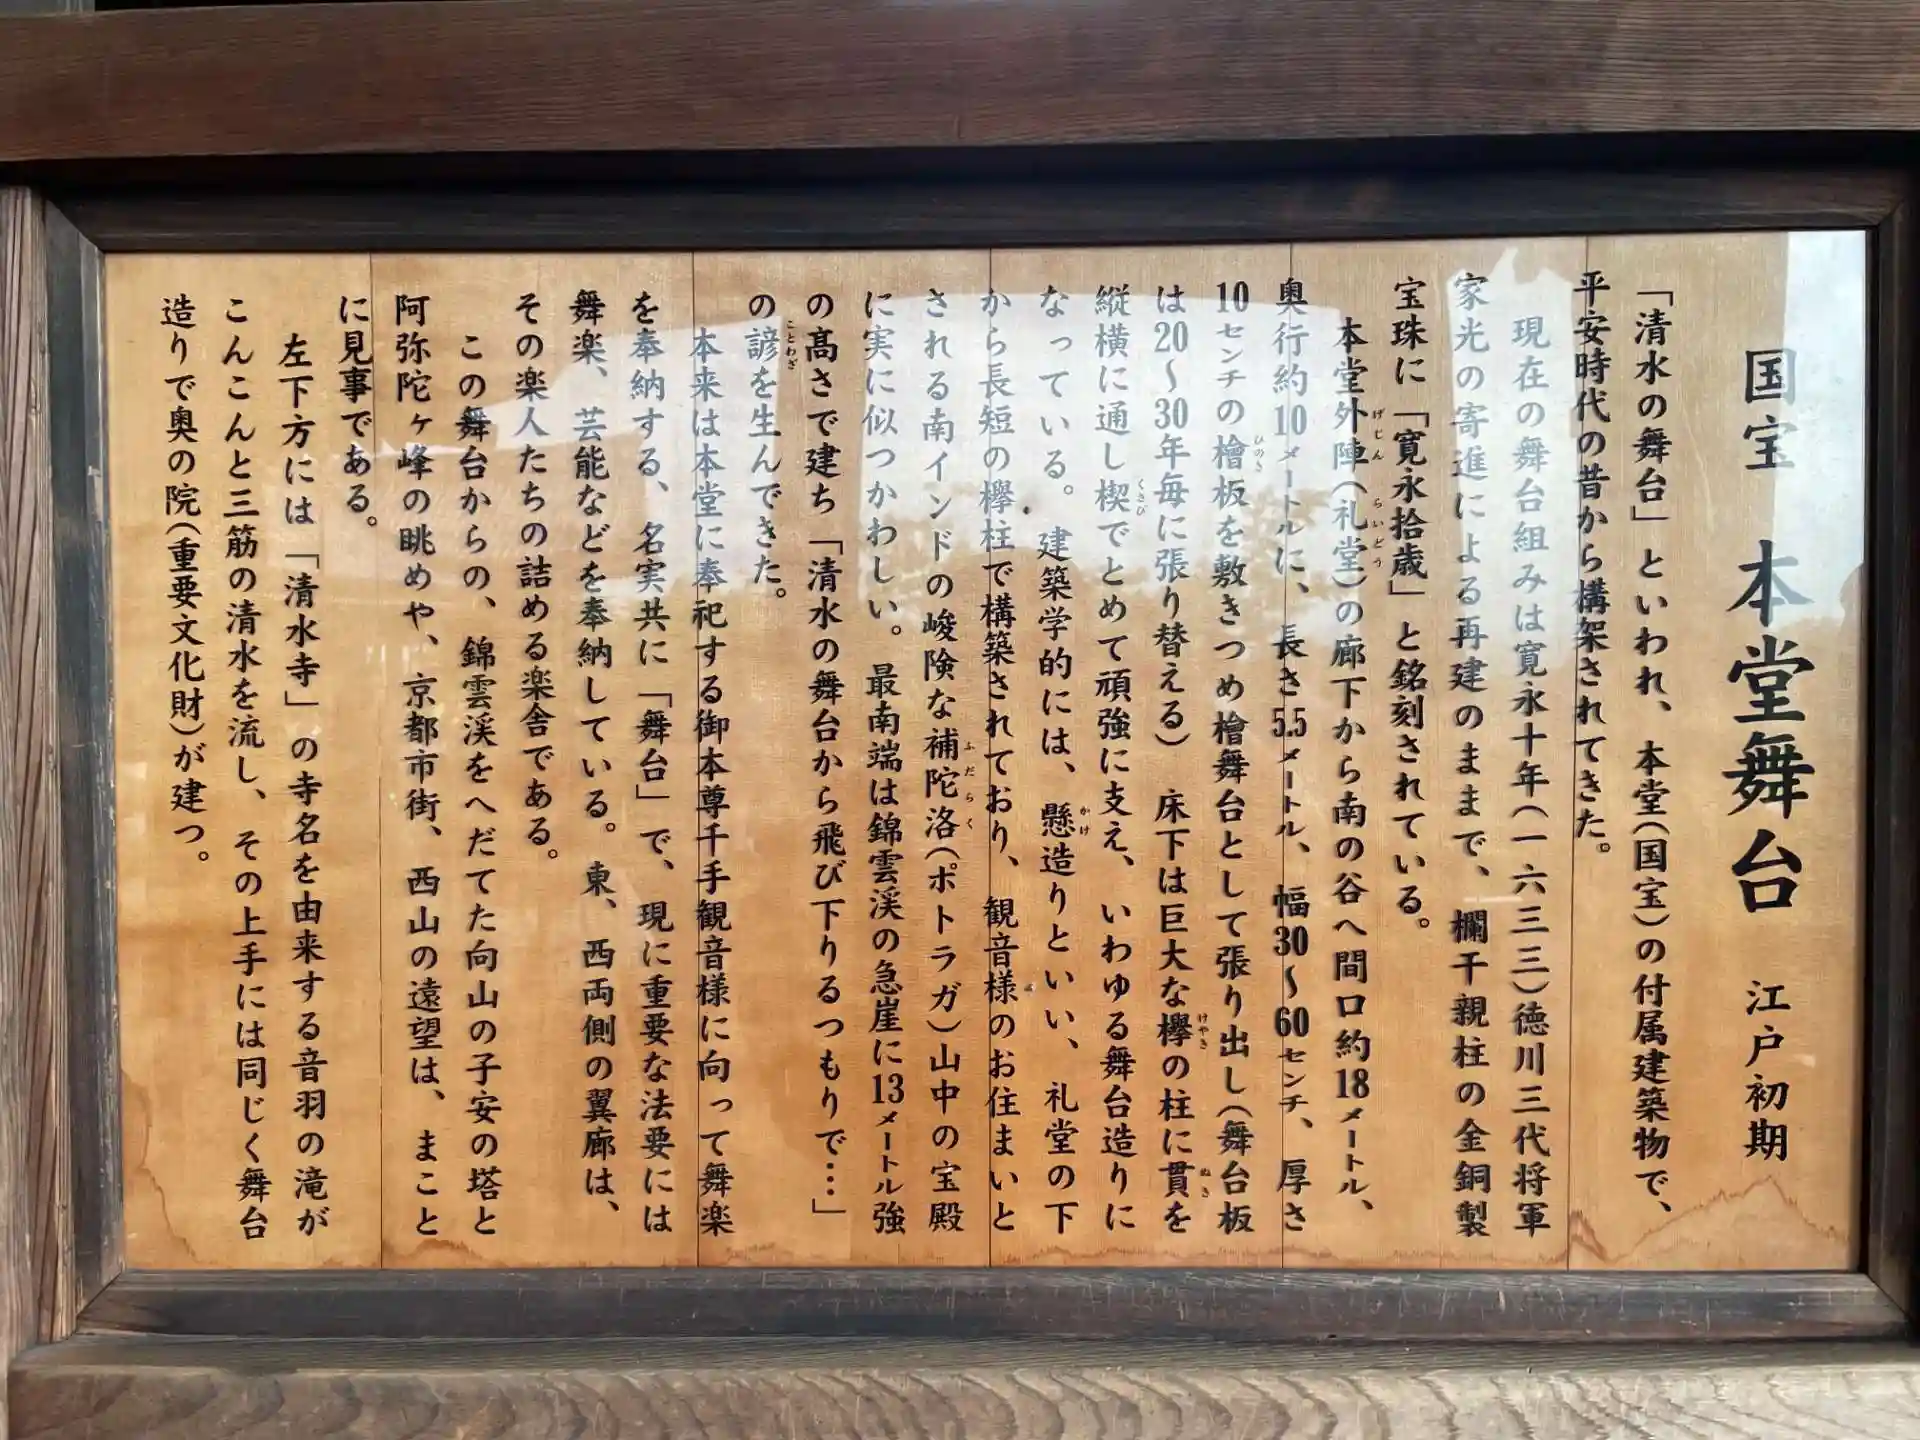 国宝　本堂舞台　江戸初期
「清水の舞台」といわれ、本堂(国宝)の付属建築物で、
平安時代の昔から構架されてきた。
現在の舞台組みは寛永十年(一六三三)徳川三代将軍
家光の寄進による再建のままで、欄干親柱の金銅製
宝珠に「寛永拾歳」と銘刻されている。
本堂外陣(礼堂)の廊下から南の谷へ間口約18メートル、
げじん　らいどう
奥行約10メートルに、長さ5.5メートル、幅30〜60センチ、厚さ
10センチの檜板を敷きつめ檜舞台として張り出し(舞台板
ひのき
は20〜30年毎に張り替える)床下は巨大な欅の柱に貫を
けやき　ぬき
縦横に通し楔でとめて頑強に支え、いわゆる舞台造りに
くさび
なっている。建築学的には、懸造りといい、礼堂の下
かけ
から長短の欅柱で構築されており、観音様のお住まいと
される南インドの峻険な補陀洛(ポトラガ)山中の宝殿
ふだらく
に実に似つかわしい。最南端は錦雲渓の急崖に13メートル強
の高さで建ち「清水の舞台から飛び下りるつもりで…」
の諺を生んできた。
ことわざ
本来は本堂に奉祀する御本尊千手観音様に向って舞楽
を奉納する、名実共に「舞台」で、現に重要な法要には
舞楽、芸能などを奉納している。東、西両側の翼廊は、
その楽人たちの詰める楽舎である。
この舞台からの、錦雲渓をへだてた向山の子安の塔と
阿弥陀ヶ峰の眺めや、京都市街、西山の遠望は、まこと
に見事である。
左下方には「清水寺」の寺名を由来する音羽の滝が
こんこんと三筋の清水を流し、その上手には同じく舞台
造りで奥の院(重要文化財)が建つ。